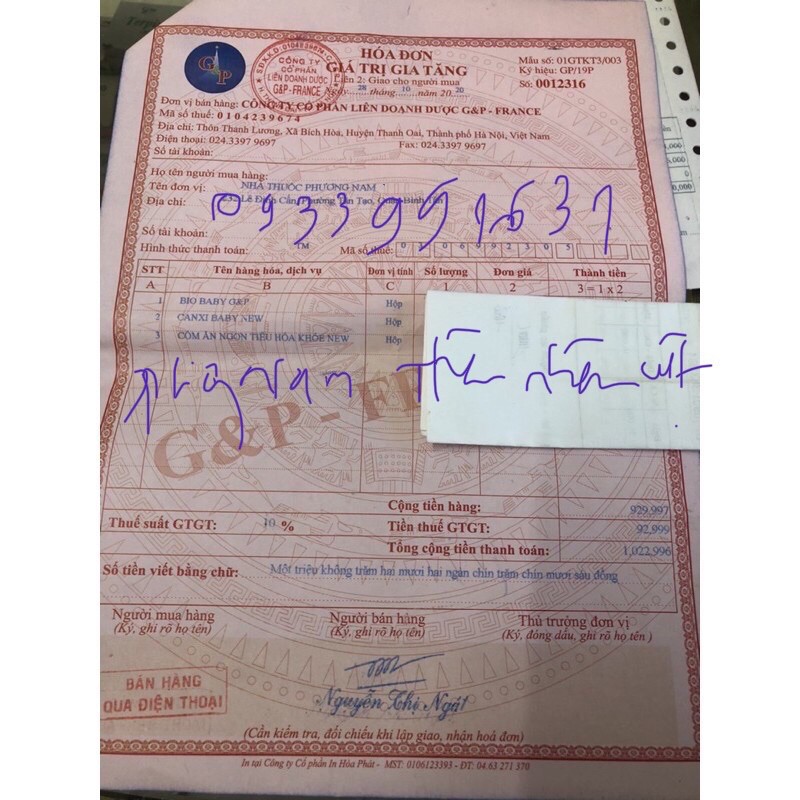 HÓA ĐƠN
GIÁ TRỊ GIA TĂNG
Liên 2: Giao cho người mua
Ngày 28 tháng 10 năm 20 20
Mẫu số: 01GTKT3/003
Ký hiệu: GP/19P
Số: 0012316
G&P
CÔNG TY
CỔ PHẦN
LIÊN DOANH DƯỢC
G&P - FRANCE
Đơn vị bán hàng: CÔNG TY CỔ PHẦN LIÊN DOANH DƯỢC G&P - FRANCE
Mã số thuế: 0104239674
Địa chỉ: Thôn Thanh Lương, Xã Bích Hòa, Huyện Thanh Oai, Thành phố Hà Nội, Việt Nam
Điện thoại: 024.3397 9697 Fax: 024.3397 9697
Số tài khoản:
Họ tên người mua hàng:
Tên đơn vị: NHÀ THUỐC PHƯƠNG NAM
Địa chỉ: 232 Lê Đình Cẩn, Phường Tân Tạo, Quận Bình Tân
Số tài khoản:
Hình thức thanh toán: TM Mã số thuế:
STT Tên hàng hóa, dịch vụ Đơn vị tính Số lượng Đơn giá Thành tiền
A B C 1 2 3 = 1 x 2
1 BIO BABY G&P Hộp
2 CANXI BABY NEW Hộp
3 CỐM ĂN NGON TIÊU HÓA KHỎE NEW Hộp
G&P - FR
Cộng tiền hàng: 929,997
Thuế suất GTGT: 10 % Tiền thuế GTGT: 92,999
Tổng cộng tiền thanh toán: 1,022,996
Số tiền viết bằng chữ: Một triệu không trăm hai mươi hai ngàn chín trăm chín mươi sáu đồng
Người mua hàng Người bán hàng Thủ trưởng đơn vị
(Ký, ghi rõ họ tên) (Ký, ghi rõ họ tên) (Ký, đóng dấu, ghi rõ họ tên)
BÁN HÀNG
QUA ĐIỆN THOẠI
Nguyễn Thị Ngát
(Cần kiểm tra, đối chiếu khi lập giao, nhận hoá đơn)
In tại Công ty Cổ phần In Hòa Phát - MST: 0106123393 - ĐT: 04.63 271 370